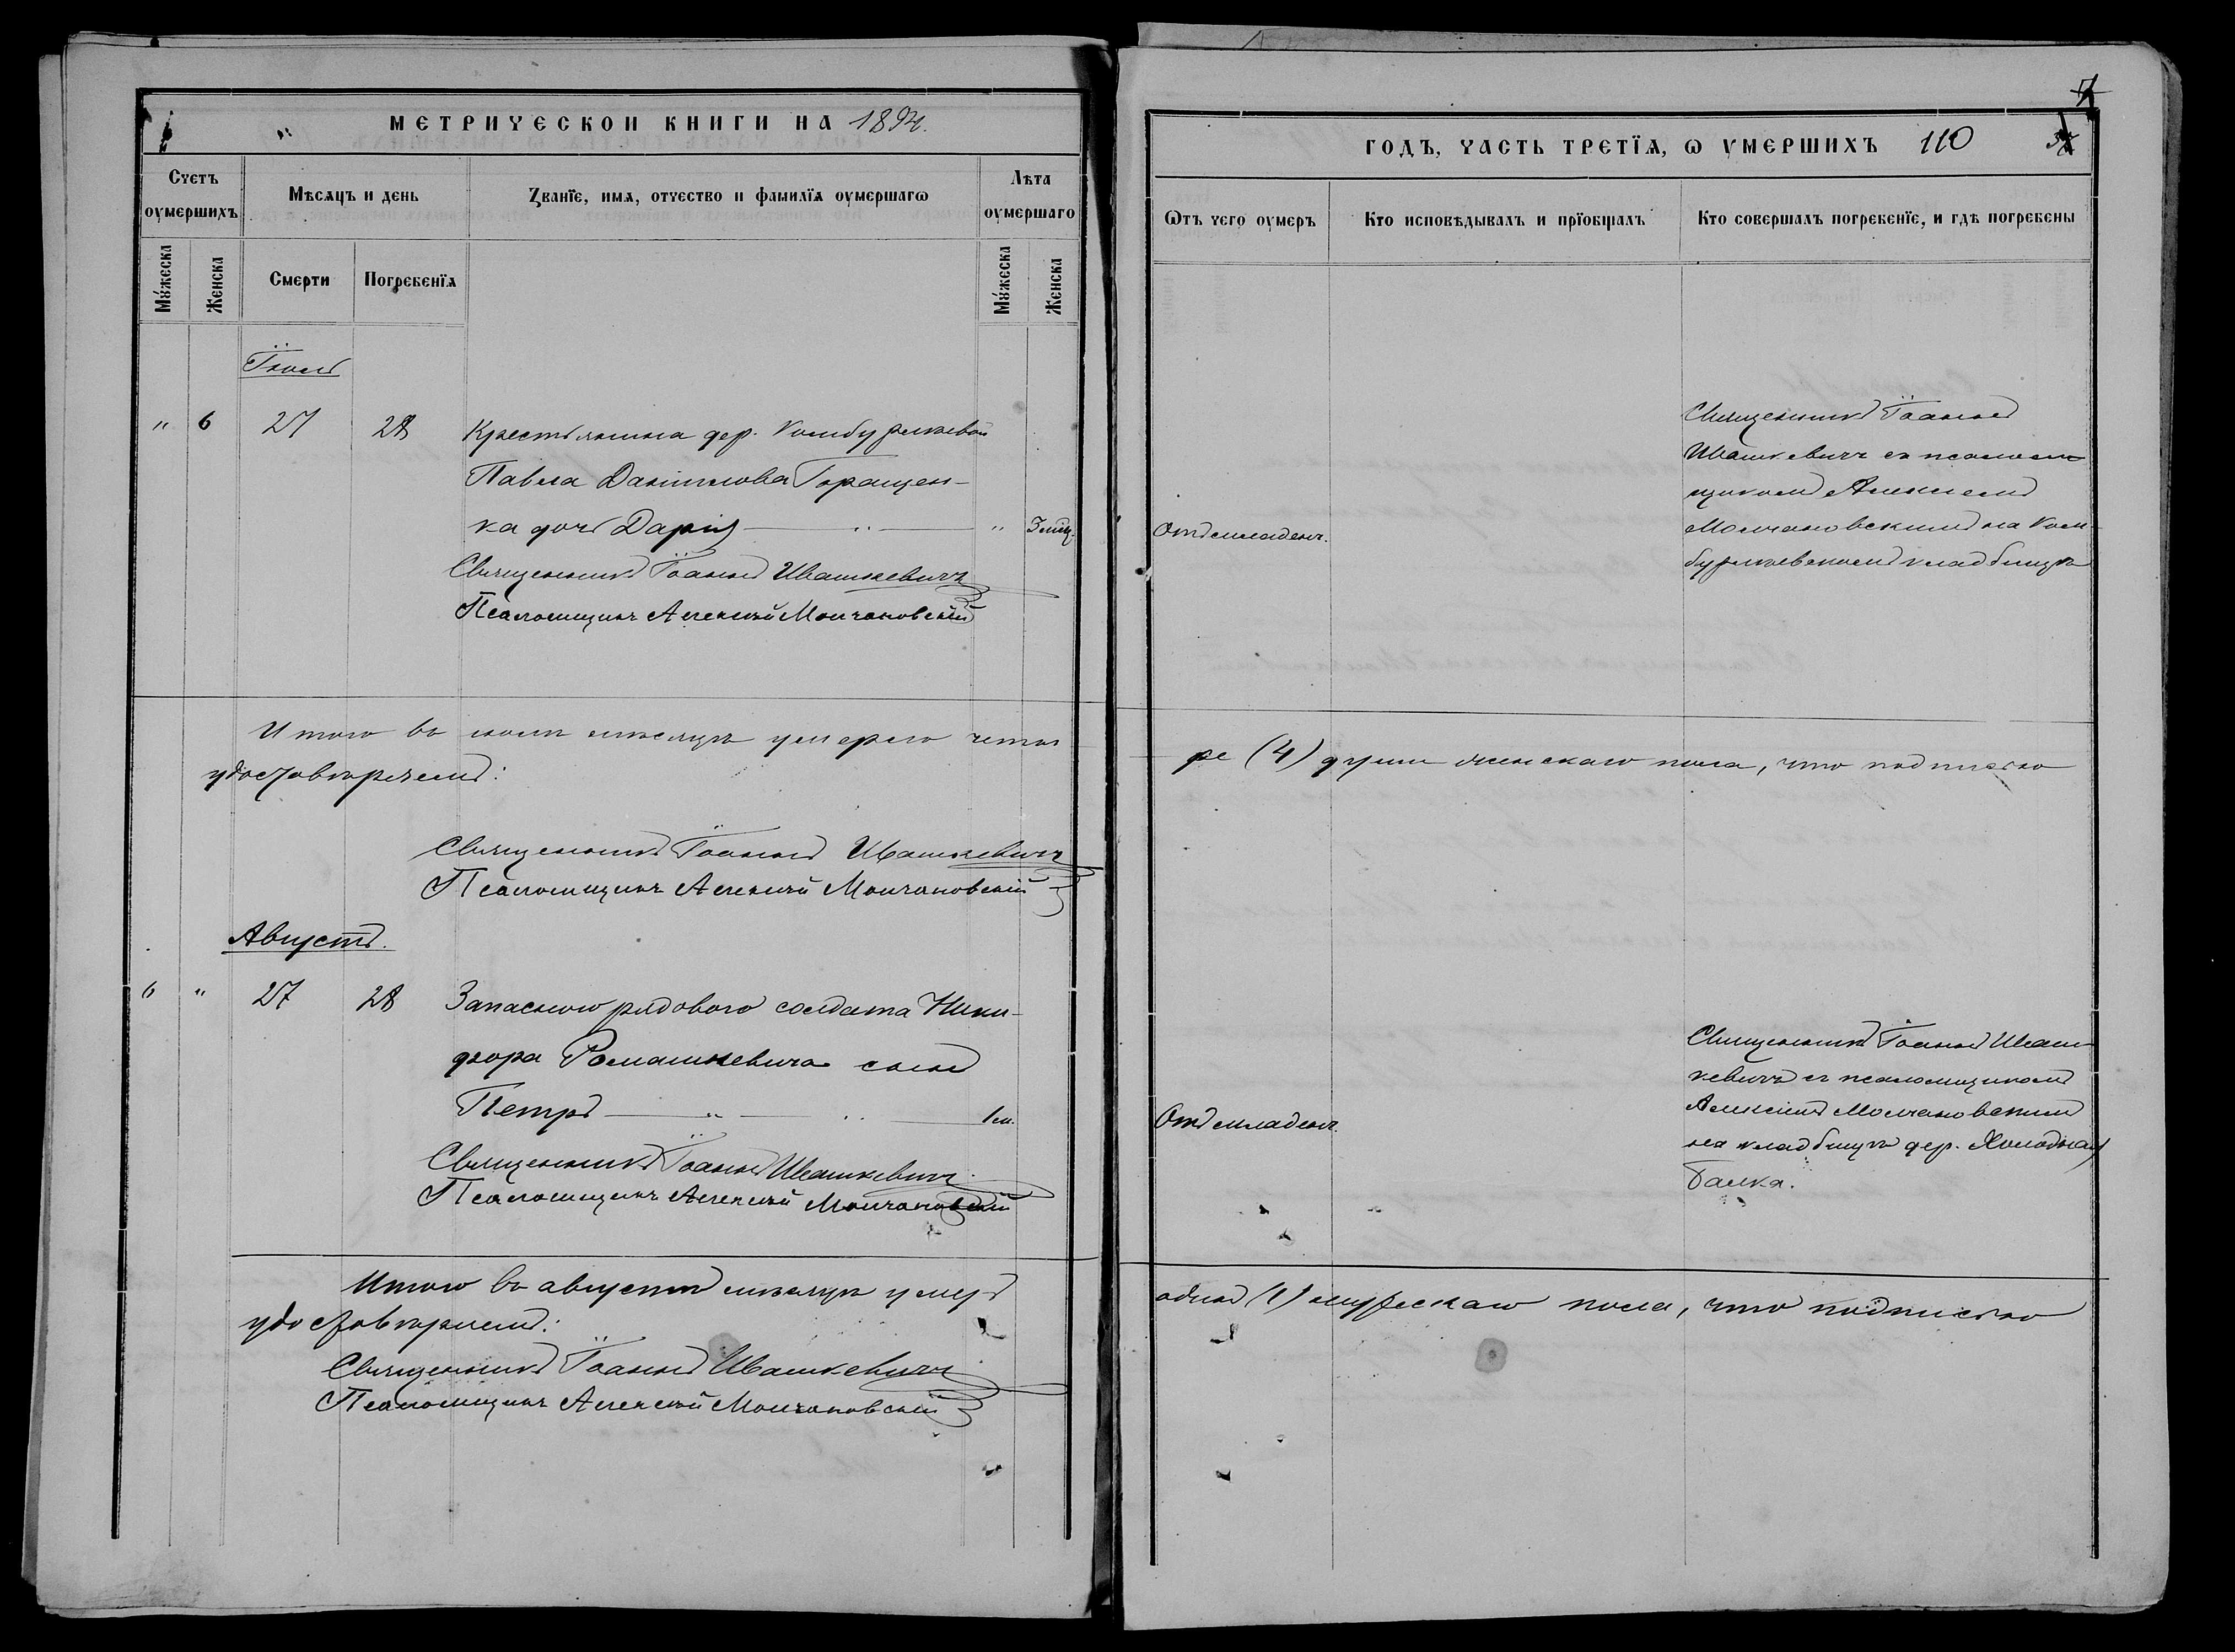 МЕТРИЧЕСКОЙ КНИГИ НА 1894.
Счетъ оумершихъ
Мѣсяцъ и день
Званїе, имя, отчество и фамилїя оумершагѡ
Лѣта оумершаго
Мꙋжеска
Женска
Смерти
Погребенїя
Мꙋжеска
Женска
Іюль
" 6 27 28 Крестьянина дер. Комбурлеевой
Павла Даніилова Горащен-
ка дочь Дарія " 3 мѣц.
Священникъ Іоаннъ Ивашкевичъ
Псаломщикъ Алексѣй Молчановскій
Итого въ іюлѣ мѣсяцѣ умерло четы
удостовѣряемъ:
Священникъ Іоаннъ Ивашкевичъ
Псаломщикъ Алексѣй Молчановскій
Августъ.
6 " 27 28 Запасного рядового солдата Ники-
фора Ромашкевича сынъ
Петръ 1 м.
Священникъ Іоаннъ Ивашкевичъ
Псаломщикъ Алексѣй Молчановскій
Итого въ августѣ мѣсяцѣ умеръ
удостовѣряемъ:
Священникъ Іоаннъ Ивашкевичъ
Псаломщикъ Алексѣй Молчановскій
ГОДЪ, ЧАСТЬ ТРЕТЇЯ, Ѡ УМЕРШИХЪ 110
Ѡтъ чего оумеръ
Кто исповѣдывалъ и прїобщалъ
Кто совершалъ погребенїе, и гдѣ погребены
Отъ младенч.
Священникъ Іоаннъ
Ивашкевичъ съ псалом
щикомъ Алексѣемъ
Молчановскимъ на Ком-
бурлеевскомъ кладбищѣ
ре (4) души женскаго пола, что подписью
Отъ младенч.
Священникъ Іоаннъ Иваш
кевичъ съ псаломщикомъ
Алексѣемъ Молчановскимъ
на кладбищѣ дер. Холодная
Балка.
одинъ (1) мужескаго пола, что подписью